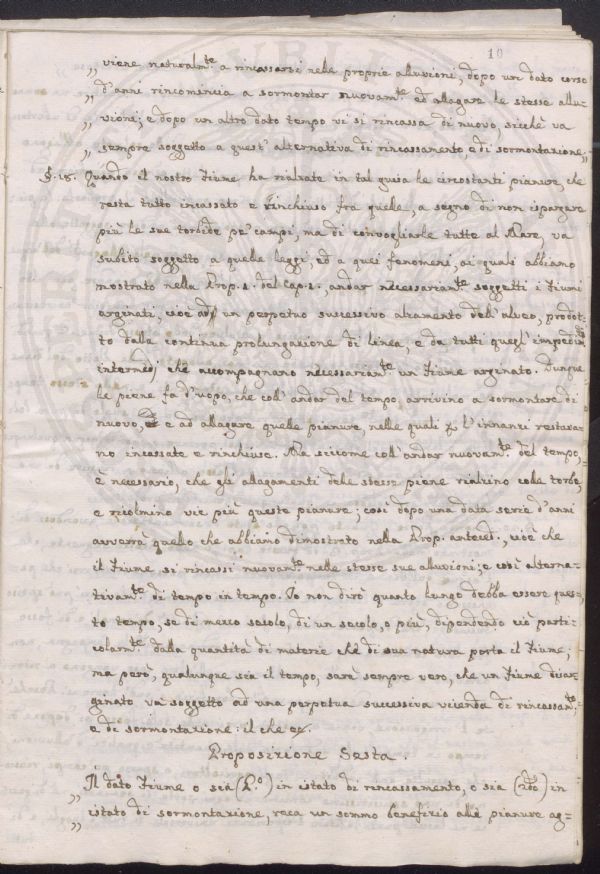 10
„ viene naturalm.te a rincassarsi nelle proprie alluvioni, dopo un dato corso
„ d'anni rincomincia a sormontar nuovam.te ed allagare le stesse allu-
„ vioni; e dopo un altro dato tempo vi si rincassa di nuovo, sicchè va
„ sempre soggetto a quest'alternativa di rincassamento, e di sormontazione„
§. 18. Quando il nostro Fiume ha rialzate in tal guisa le circostanti pianure, che
resta tutto incassato e rinchiuso fra quelle, a segno di non ispargere
più le sue torbide pe' campi, ma di convogliarle tutte al Mare, va
subito soggetto a quelle leggi, ed a quei fenomeni, ai quali abbiamo
mostrato nella Prop. 1. del Cap. 1., andar necessariam.te soggetti i Fiumi
arginati, cioè ad un perpetuo successivo alzamento dell'alveo, prodot-
to dalla continua prolungazione di linea, e da tutti quegl'impedim.ti
intermedj che accompagnano necessariam.te un Fiume arginato. Dunque
le piene fa d'uopo, che coll'andar del tempo, arrivino a sormontare di
nuovo, e ad allagare quelle pianure, nelle quali p l'innanzi restava-
no incassate e rinchiuse. Ma siccome coll'andar nuovam.te del tempo,
è necessario, che gli allagamenti delle stesse piene rialzino colle torbe,
e ricolmino vie più queste pianure; così dopo una data serie d'anni
avverrà quello che abbiamo dimostrato nella Prop. anteced., cioè che
il Fiume si rincassi nuovam.te nelle stesse sue alluvioni; e così alterna-
tivam.te di tempo in tempo. Io non dirò quanto lungo debba essere ques-
to tempo, se di mezzo secolo, di un secolo, o più, dipendendo ciò parti-
colarm.te dalla quantità di materie che di sua natura porta il Fiume;
ma però, qualunque sia il tempo, sarà sempre vero, che un Fiume disar-
ginato va soggetto ad una perpetua successiva vicenda di rincassam.to,
e di sormontazione: il che &c.
Proposizione Sesta.
„ Il dato Fiume o sia (P.o) in istato di rincassamento, o sia (2do) in
„ istato di sormontazione, reca un sommo benefizio alle pianure ag=
„